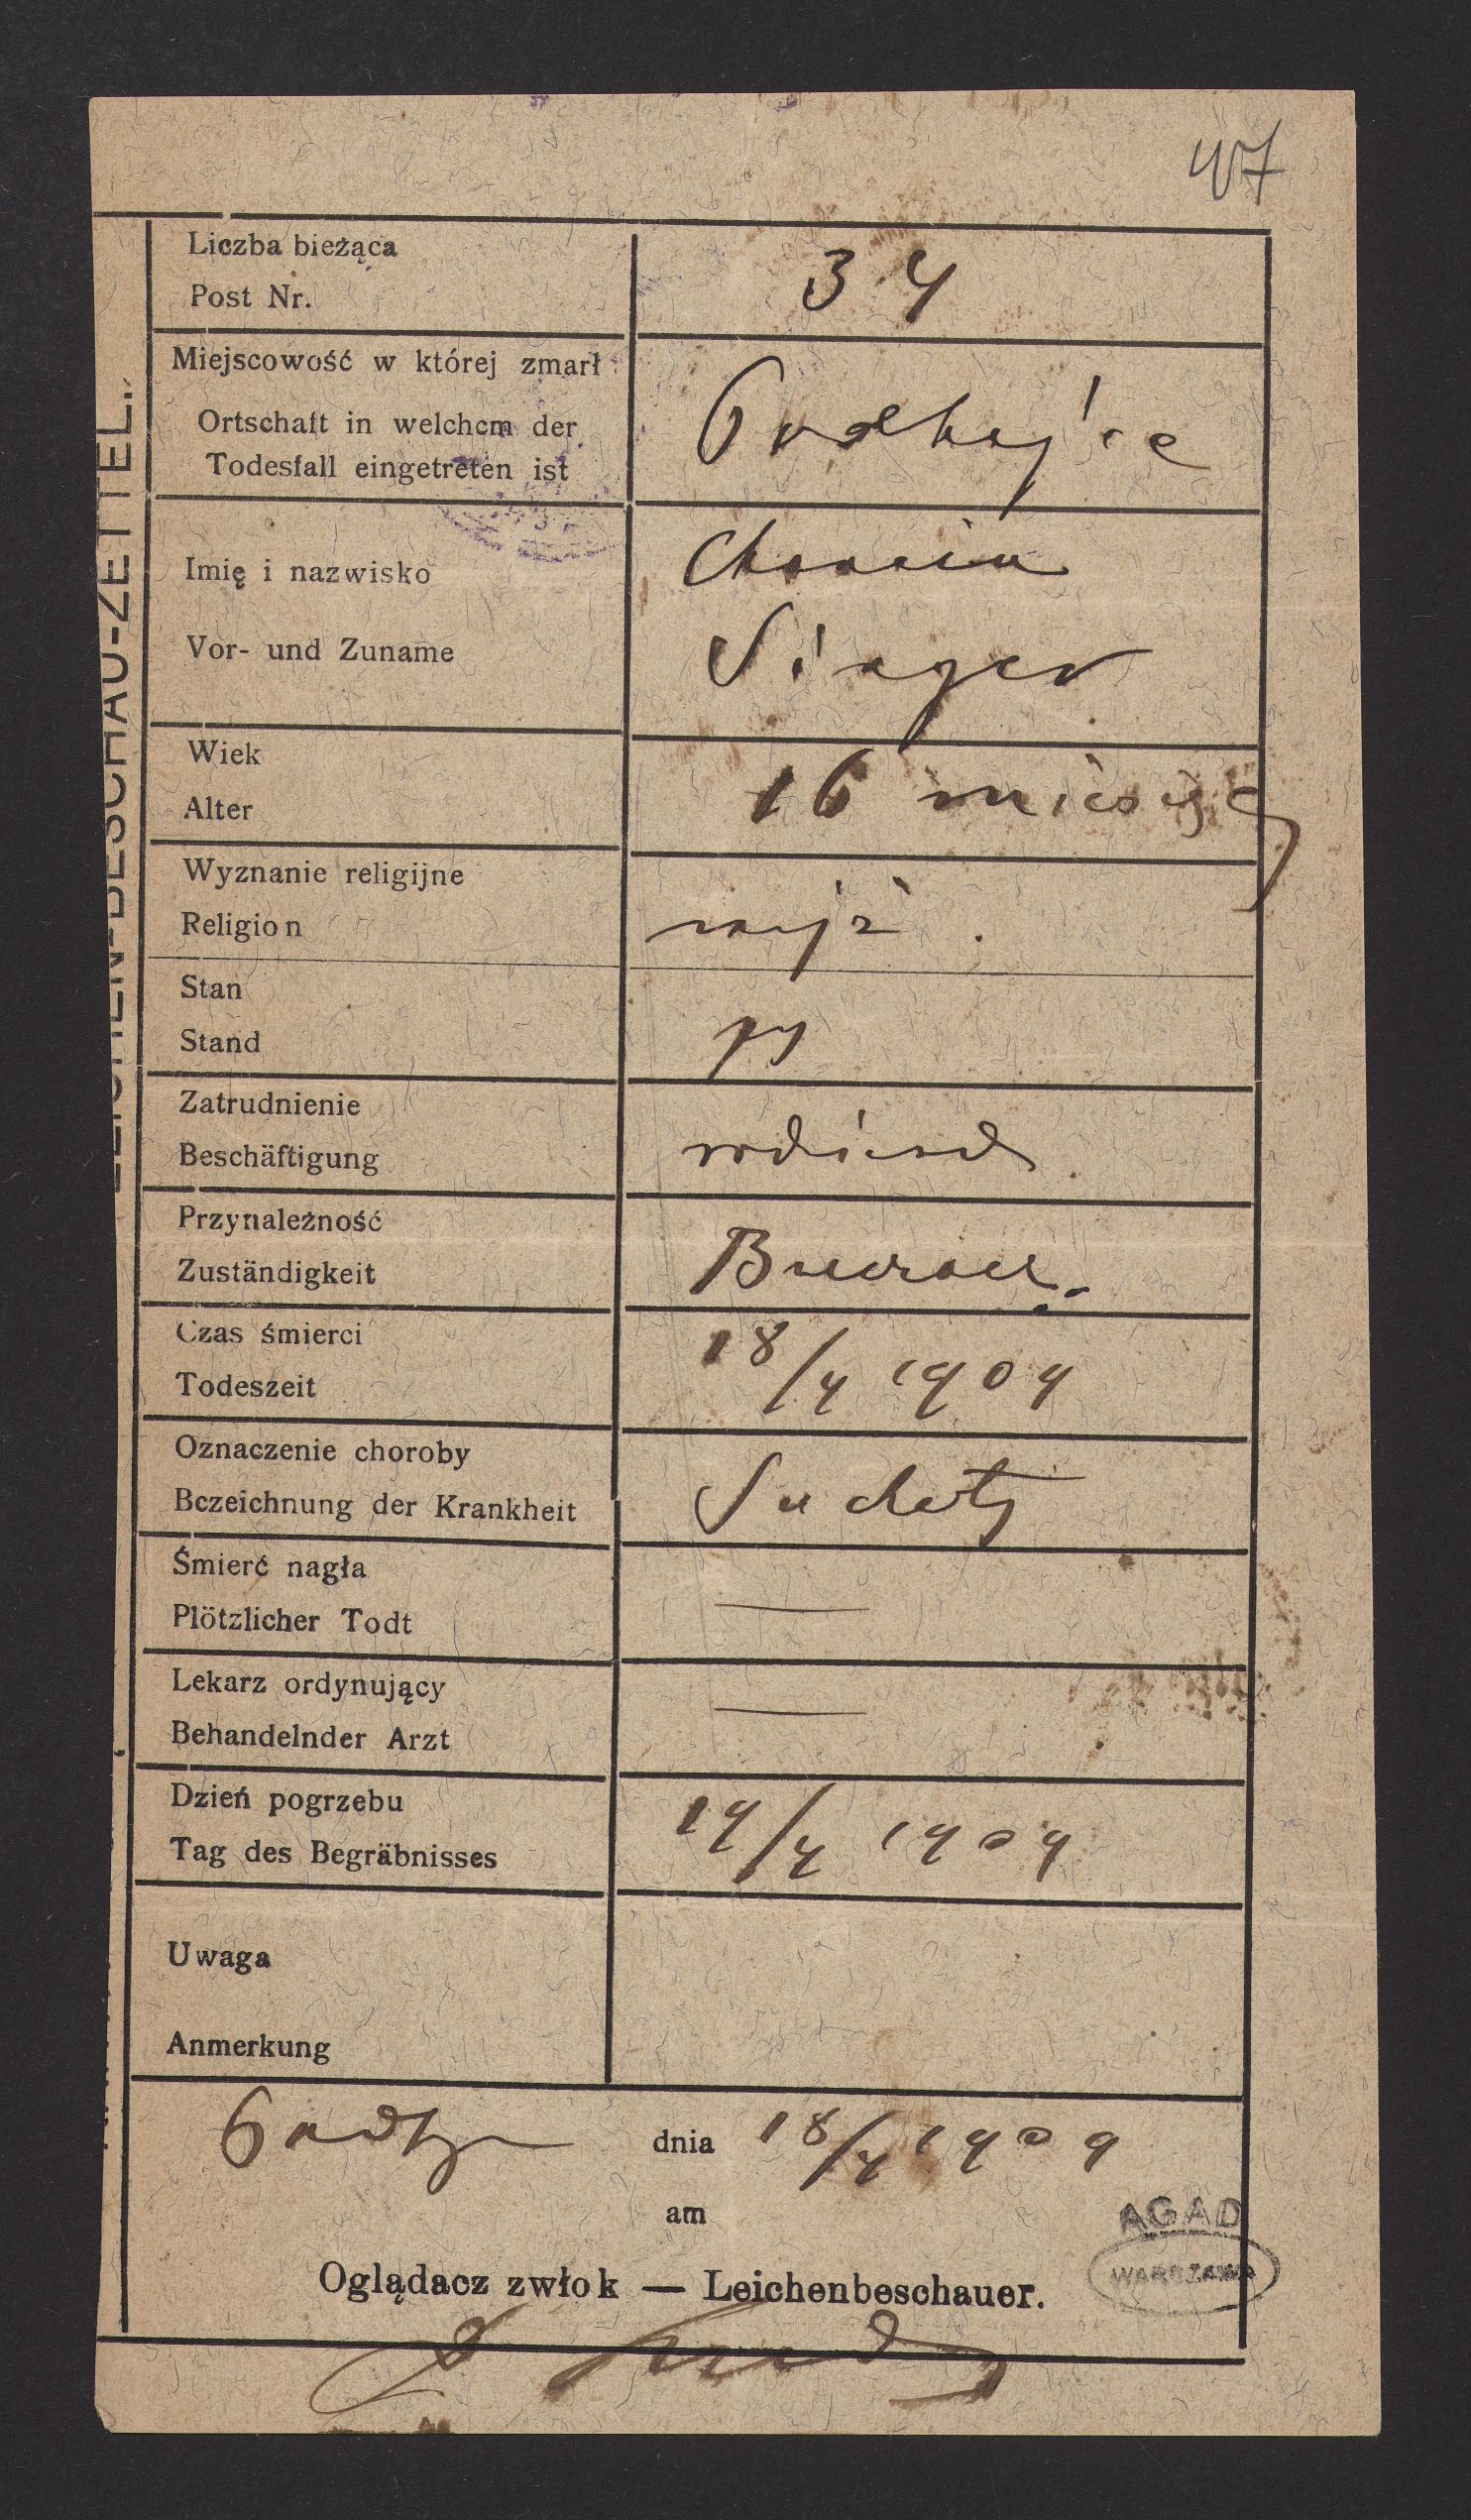 47
LEICHEN-BESCHAU-ZETTEL.
Liczba bieżąca
Post Nr.
34
Miejscowość w której zmarł
Ortschaft in welchem der
Todesfall eingetreten ist
Podhajce
Imię i nazwisko
Vor- und Zuname
Singer
Wiek
Alter
16 miesięcy
Wyznanie religijne
Religion
mojż
Stan
Stand
Zatrudnienie
Beschäftigung
Przynależność
Zuständigkeit
Buczacz.
Czas śmierci
Todeszeit
18/4 1909
Oznaczenie choroby
Bezeichnung der Krankheit
Suchoty
Śmierć nagła
Plötzlicher Todt
—
Lekarz ordynujący
Behandelnder Arzt
—
Dzień pogrzebu
Tag des Begräbnisses
19/4 1909
Uwaga
Anmerkung
dnia 18/4 1909
am
AGAD
WARSZAWA
Oglądacz zwłok — Leichenbeschauer.